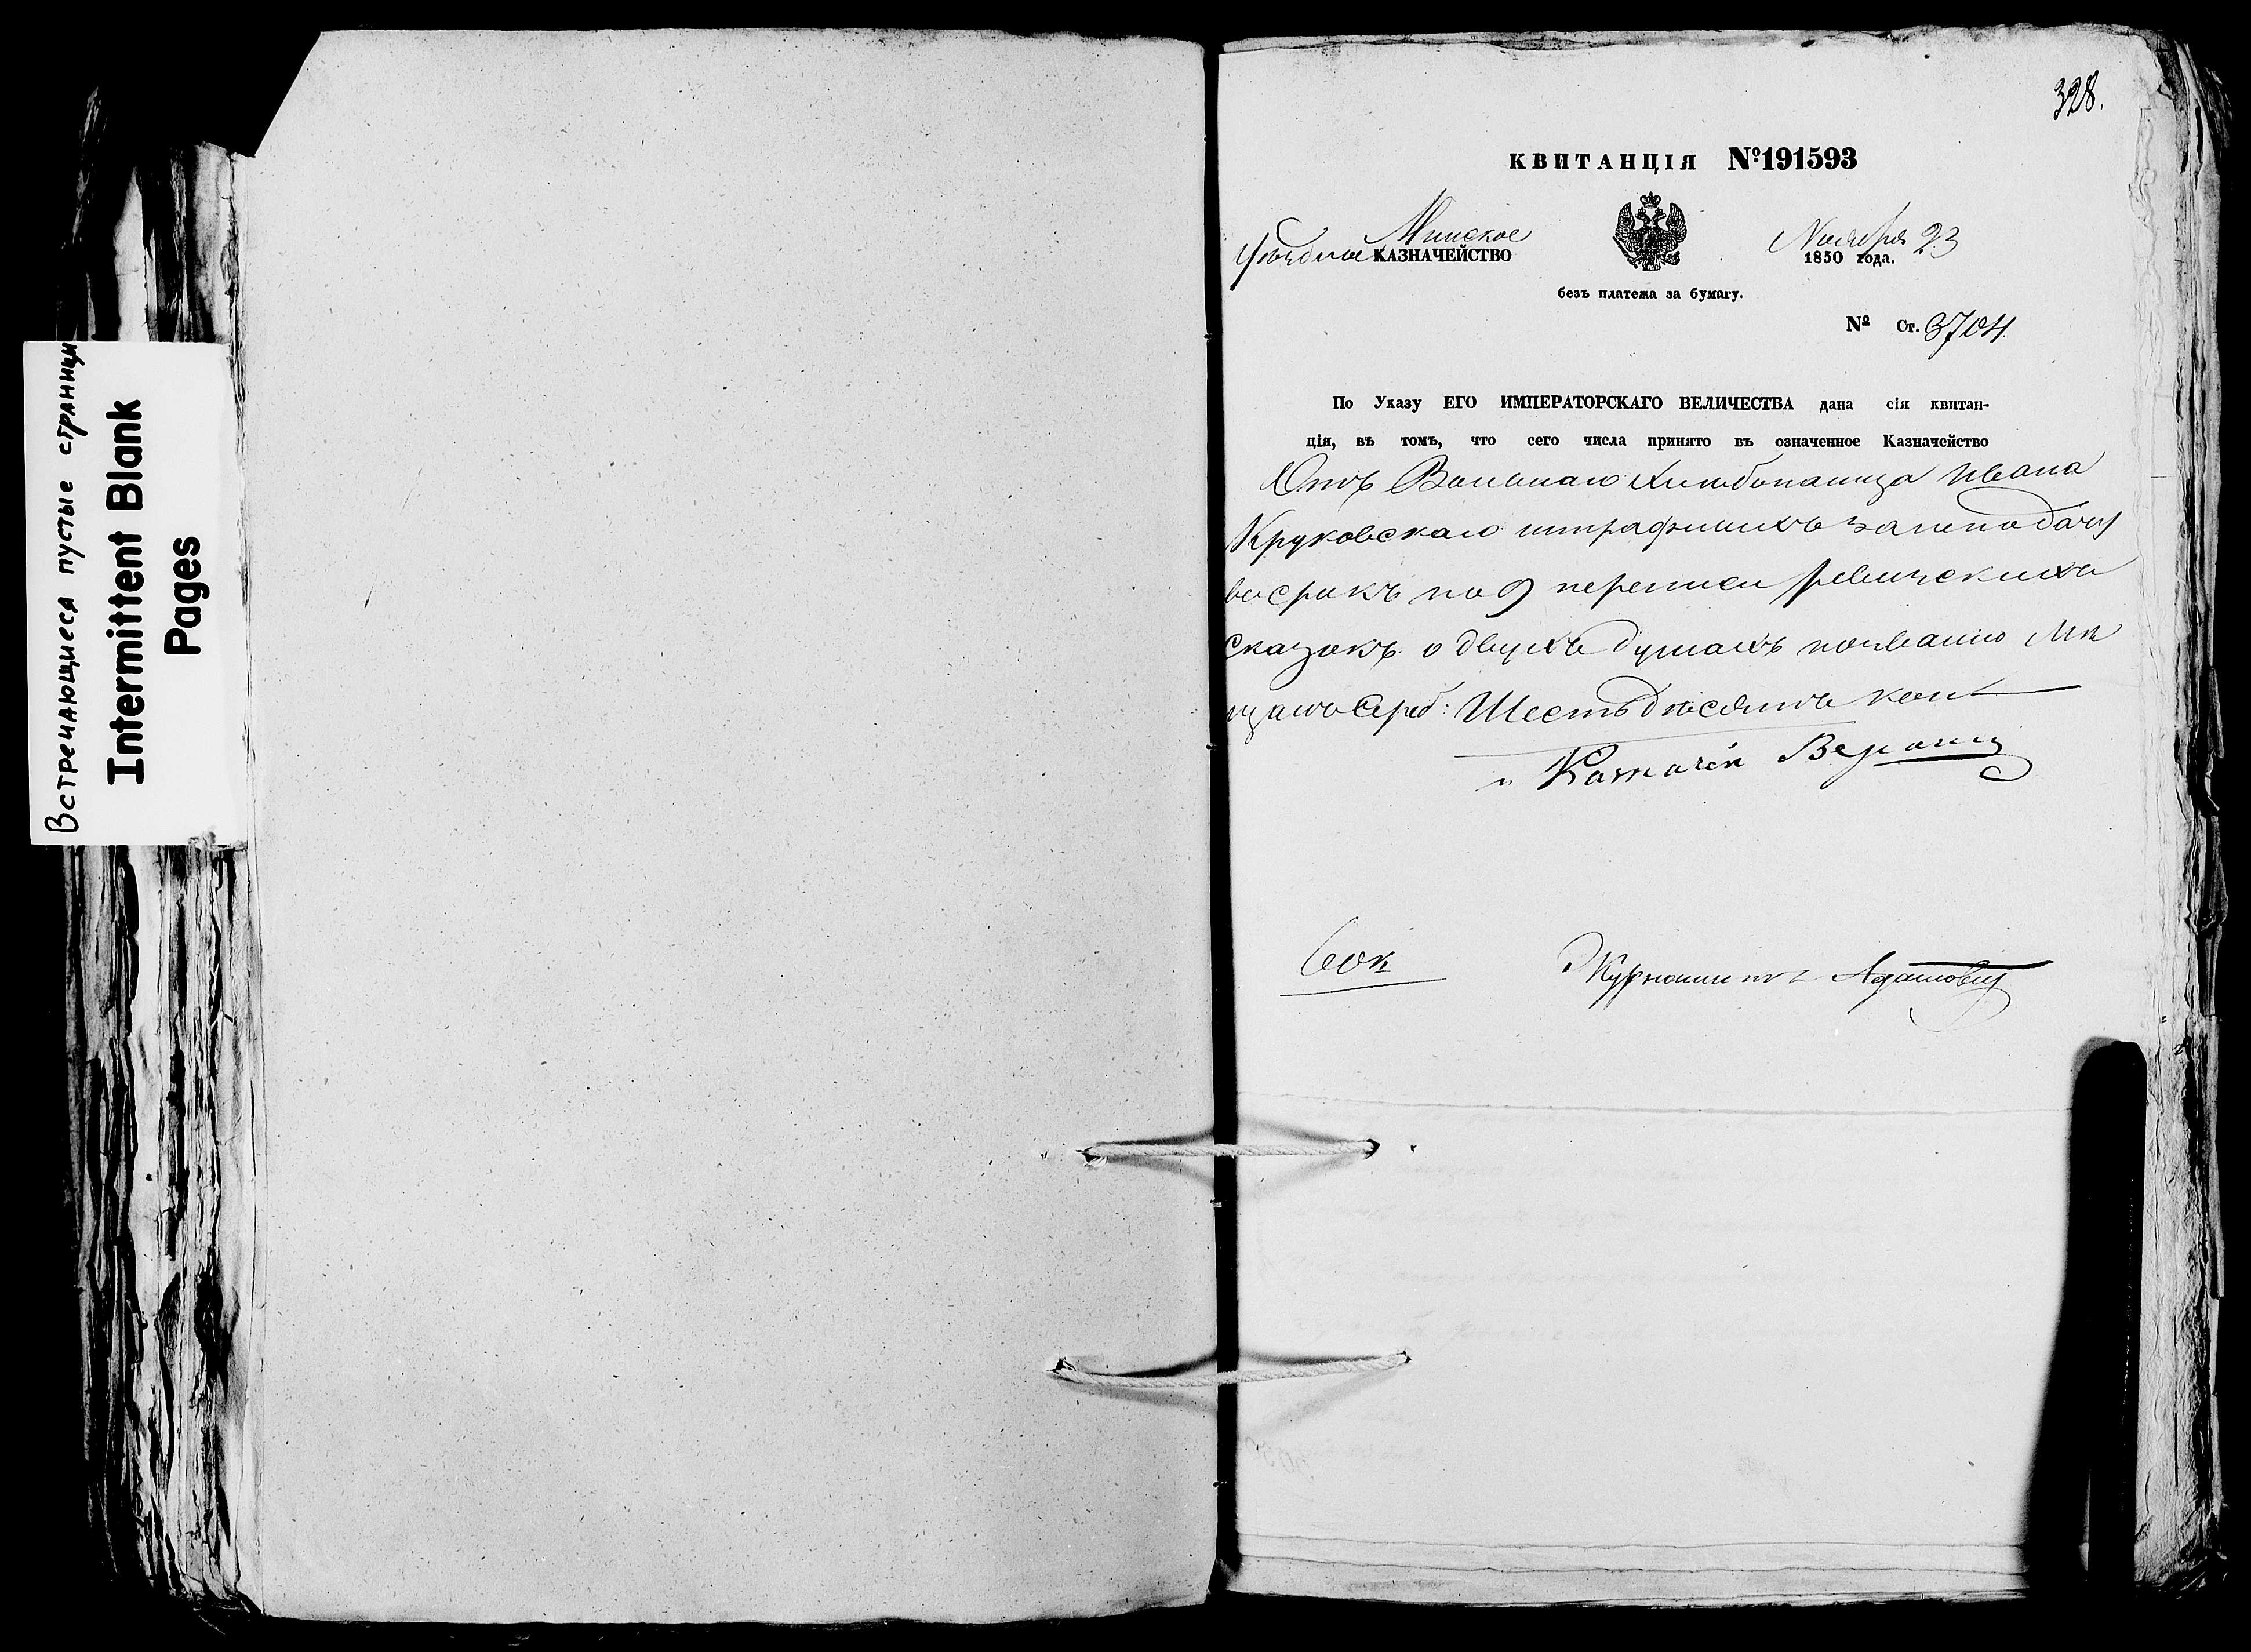 Встречающиеся пустые страницы
Intermittent Blank
Pages
328.
КВИТАНЦІЯ №191593
Минское
Уѣздное КАЗНАЧЕЙСТВО
Ноября 23
1850 года.
безъ платежа за бумагу.
№ Ст. 3704.
По Указу ЕГО ИМПЕРАТОРСКАГО ВЕЛИЧЕСТВА дана сія квитан-
ція, въ томъ, что сего числа принято въ означенное Казначейство
Отъ Вольнаго Хлѣбопашца Ивана
Круковскаго штрафныхъ за неподачу
въ срокъ по 9 переписи ревизскихъ
сказокъ о двухъ душахъ по званію Мѣ
щанъ Сереб: Шестьдѣсятъ коп
Казначей
60 к
Журналистъ Адамовичъ